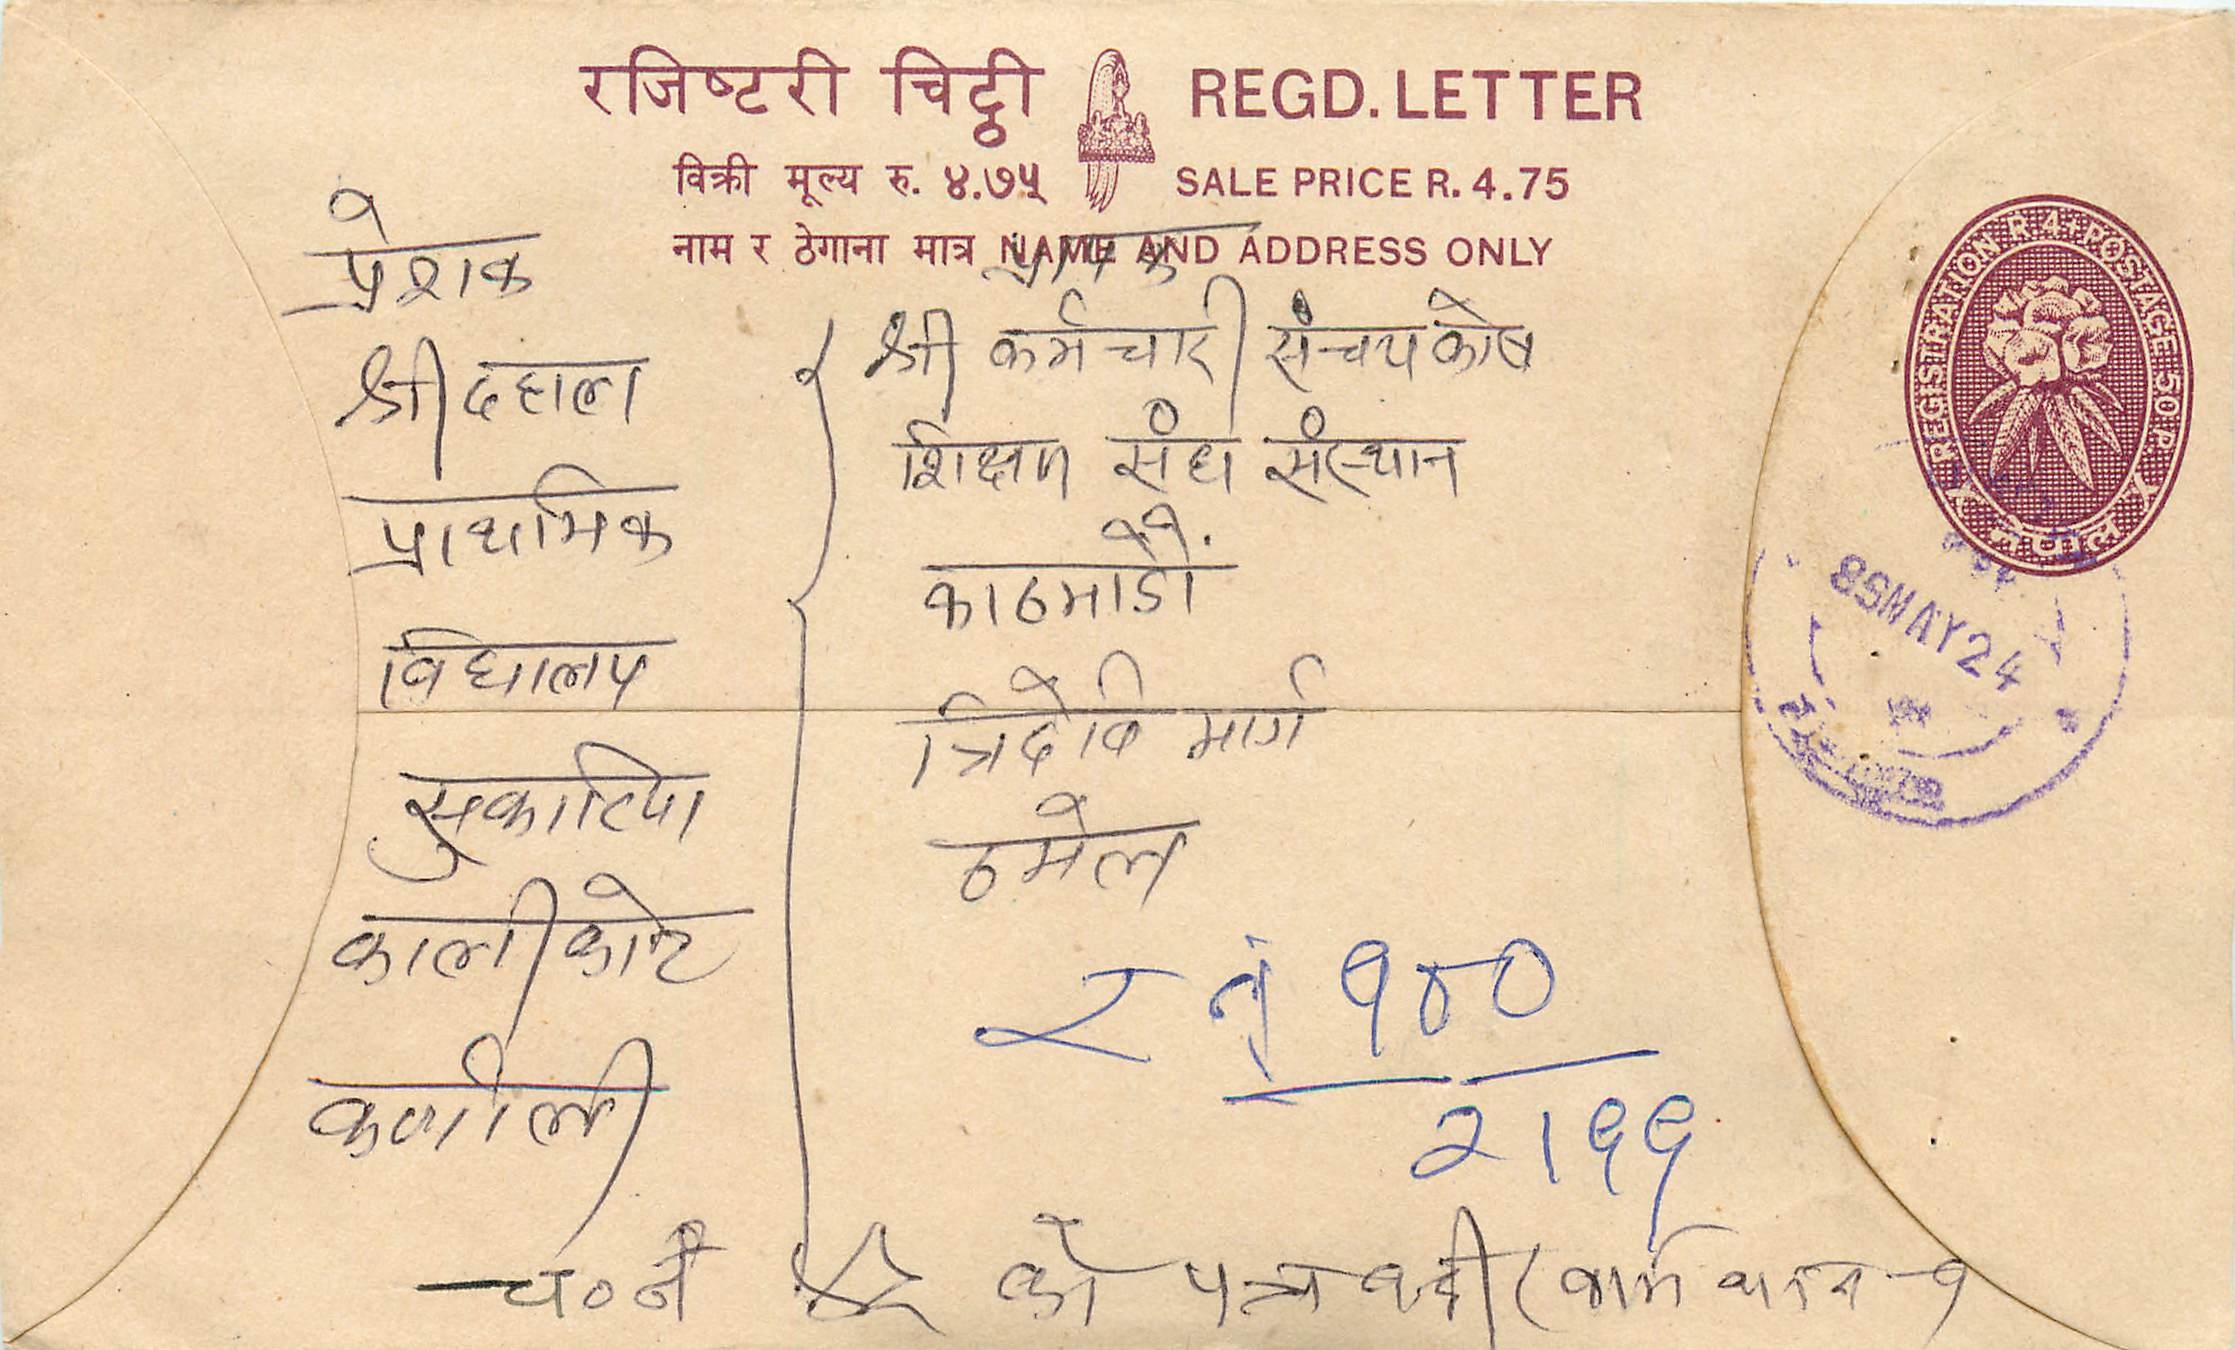 रजिष्टरी चिट्ठी REGD. LETTER
विक्री मूल्य रु. ४.७५ SALE PRICE R. 4.75
नाम र ठेगाना मात्र NAME AND ADDRESS ONLY
REGISTRATION R. 4 + POSTAGE 50 P.
नेपाल
85 MAY 24
प्रेशक
श्री दहाल
प्राथमिक
विद्यालय
सुकाटिया
कालीकोट
कर्णाली
प्रापक
श्री कर्मचारी संचय कोष
शिक्षण संघ संस्थान
काठमाडौं
त्रिदेवि मार्ग
ठमेल
र नं १४०
२।६६
च०नं को पत्र